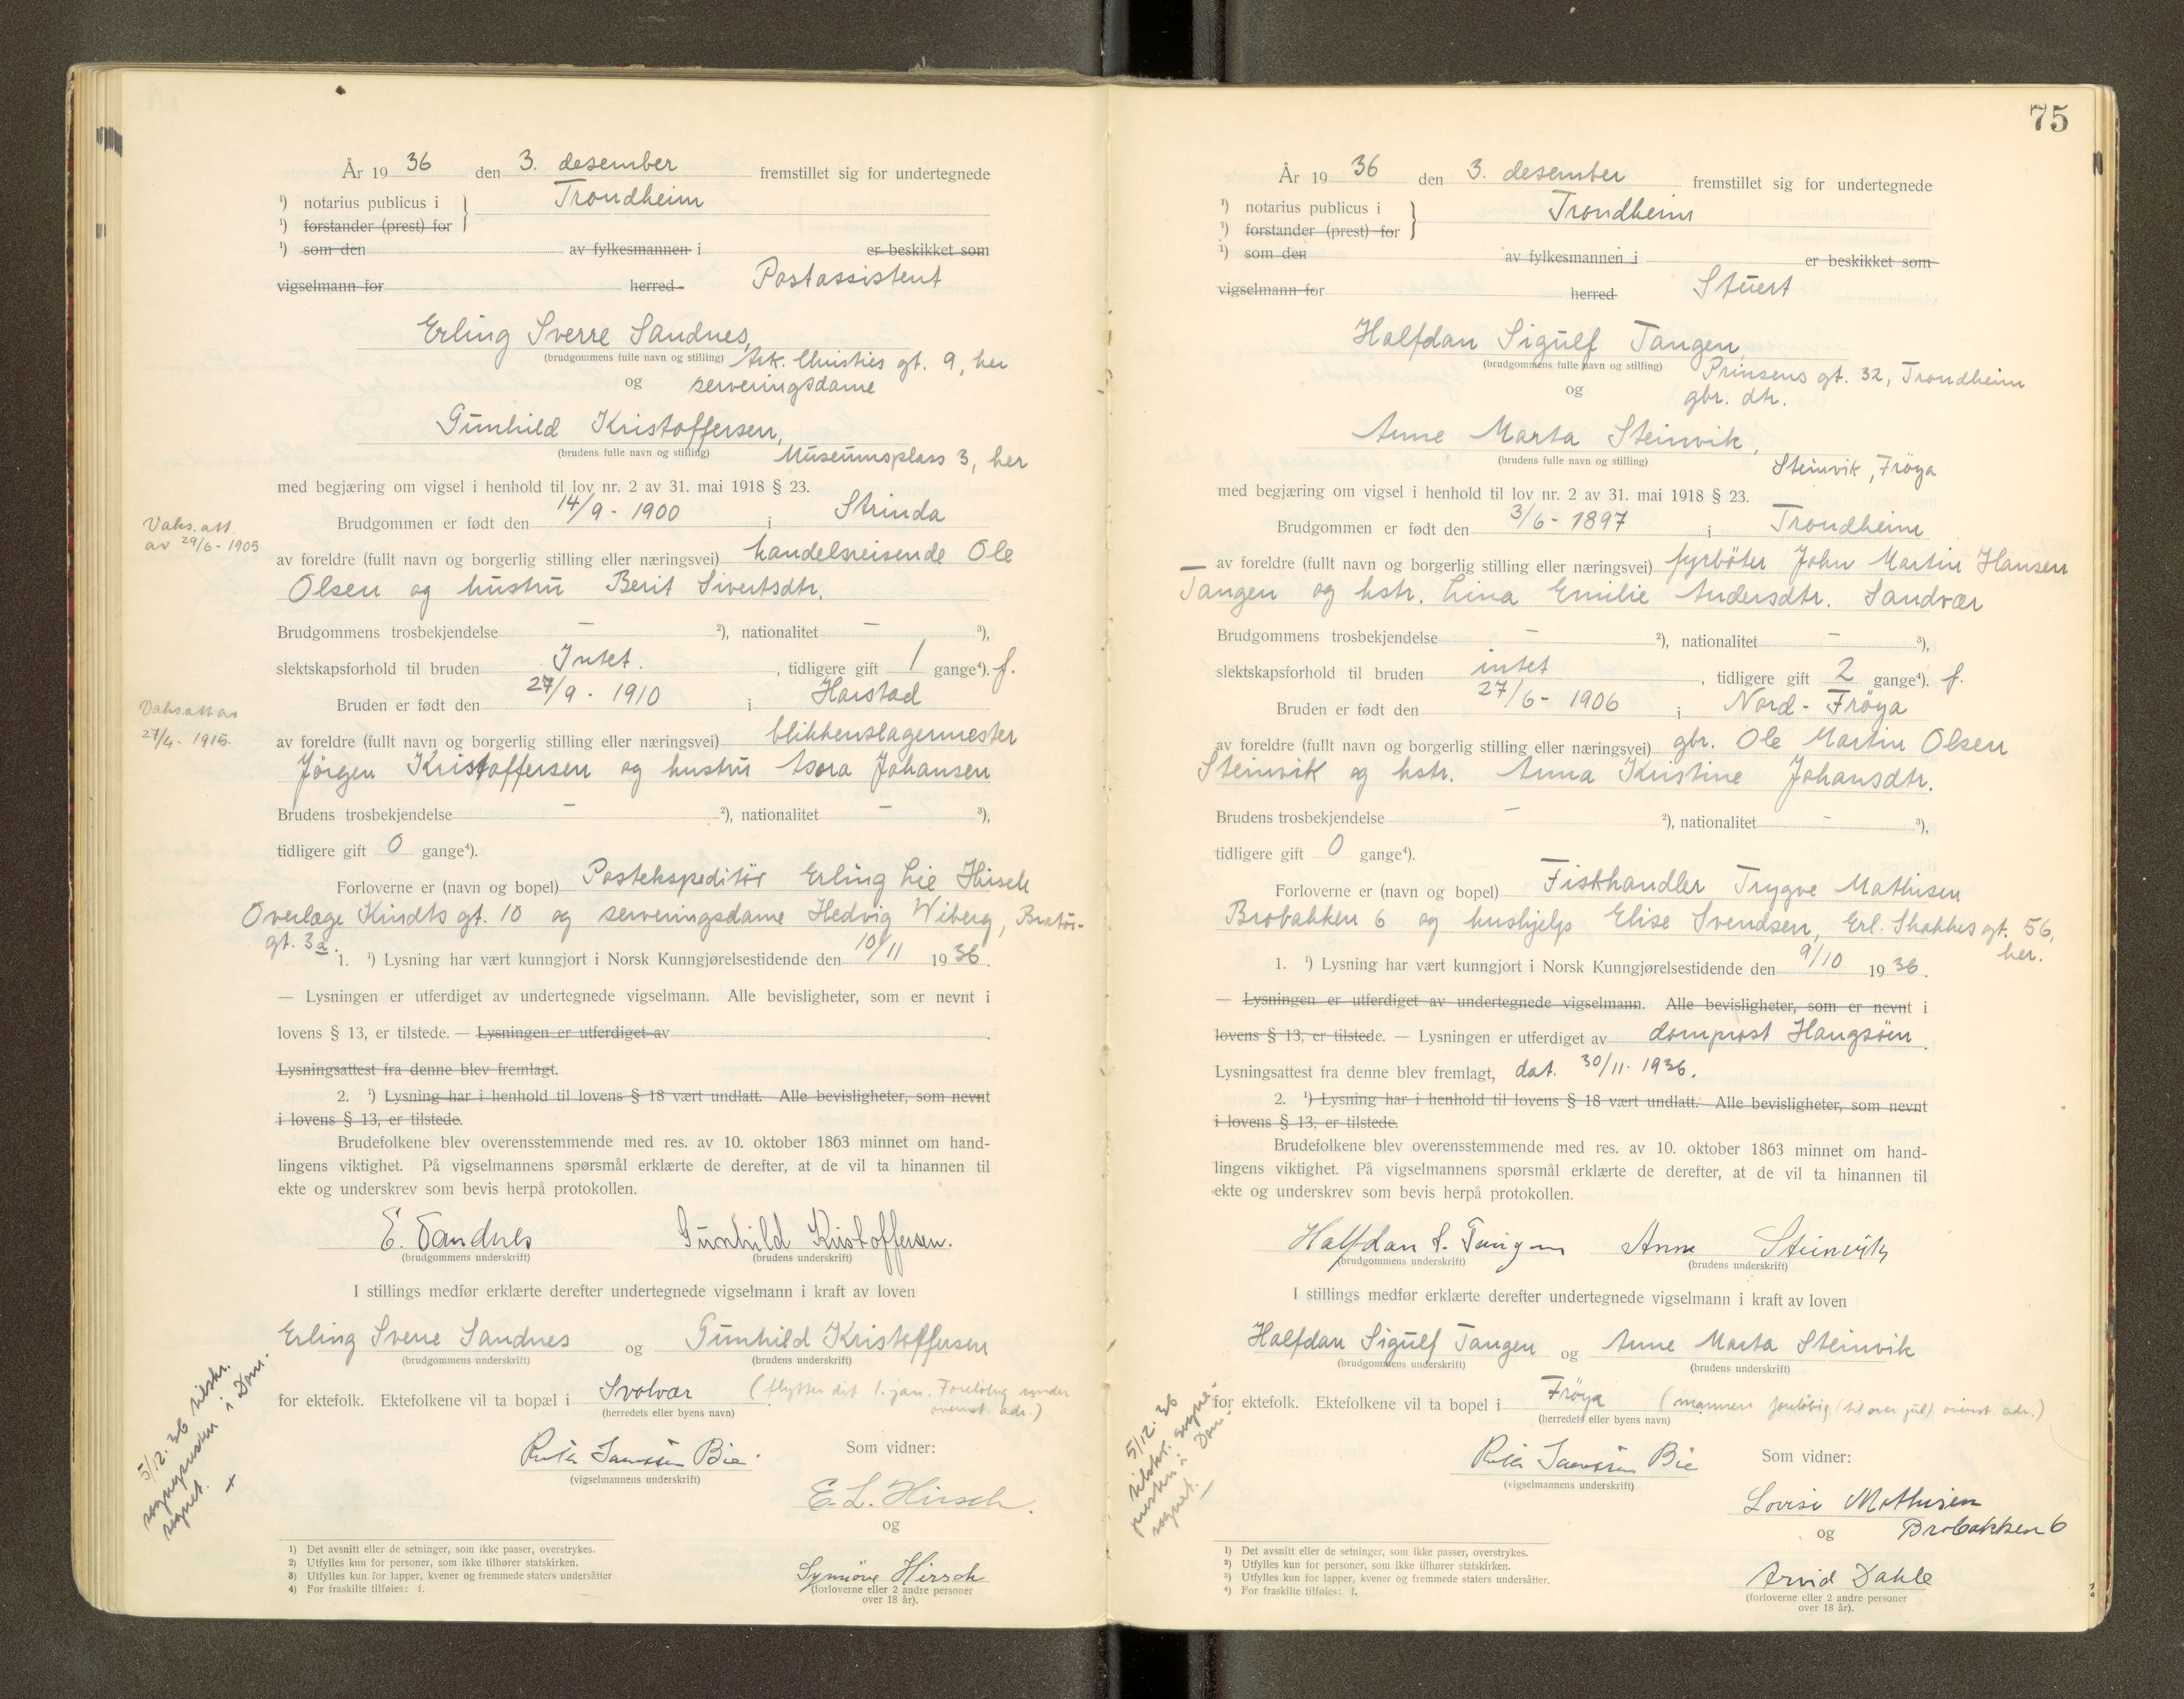 År 19 36 den 3. desember fremstillet sig for undertegnede
¹) notarius publicus i } Trondheim
¹) forstander (prest) for
¹) som den av fylkesmannen i er beskikket som
vigselmann for herred Postassistent
Erling Sverre Sandnes,
(brudgommens fulle navn og stilling) Ark. Christies gt. 9, her
og serveringsdame
Gunhild Kristoffersen,
(brudens fulle navn og stilling) Museumsplass 3, her
med begjæring om vigsel i henhold til lov nr. 2 av 31. mai 1918 § 23.
Vaks. att.
av 29/6 - 1905
Brudgommen er født den 14/9 - 1900 i Strinda
av foreldre (fullt navn og borgerlig stilling eller næringsvei) handelsreisende Ole
Olsen og hustru Berit Sivertsdtr.
Brudgommens trosbekjendelse - ²), nationalitet - ³),
slektskapsforhold til bruden Intet. , tidligere gift 1 gange⁴). f.
Vaks. att av
27/4 - 1915.
Bruden er født den 27/9 - 1910 i Harstad
av foreldre (fullt navn og borgerlig stilling eller næringsvei) blikkenslagermester
Jörgen Kristoffersen og hustru Asora Johansen
Brudens trosbekjendelse - ²), nationalitet - ³),
tidligere gift 0 gange⁴).
Forloverne er (navn og bopel) Postekspeditör Erling Lie Hirsch
Overlæge Kindts gt. 10 og serveringsdame Hedvig Wiberg, Bratör-
gt. 3a.
1. ¹) Lysning har vært kunngjort i Norsk Kunngjørelsestidende den 10/11 19 36.
— Lysningen er utferdiget av undertegnede vigselmann. Alle bevisligheter, som er nevnt i
lovens § 13, er tilstede. — Lysningen er utferdiget av .
Lysningsattest fra denne blev fremlagt.
2. ¹) Lysning har i henhold til lovens § 18 vært undlatt. Alle bevisligheter, som nevnt
i lovens § 13, er tilstede.
Brudefolkene blev overensstemmende med res. av 10. oktober 1863 minnet om hand-
lingens viktighet. På vigselmannens spørsmål erklærte de derefter, at de vil ta hinannen til
ekte og underskrev som bevis herpå protokollen.
E. Sandnes Gunhild Kristoffersen.
(brudgommens underskrift) (brudens underskrift)
I stillings medfør erklærte derefter undertegnede vigselmann i kraft av loven
Erling Sverre Sandnes og Gunhild Kristoffersen
(brudgommens underskrift) (brudens underskrift)
for ektefolk. Ektefolkene vil ta bopæl i Svolvær (flytter dit 1. jan. Foreløbig under
(herredets eller byens navn) ovenst. adr.)
5/12. 36 tilskr.
sognepresten i Dom-
sognet. +
Ruth Bie
(vigselmannens underskrift)
Som vidner:
E. L. Hirsch.
og
Synnöve Hirsch
(forloverne eller 2 andre personer
over 18 år).
1) Det avsnitt eller de setninger, som ikke passer, overstrykes.
2) Utfylles kun for personer, som ikke tilhører statskirken.
3) Utfylles kun for lapper, kvener og fremmede staters undersåtter
4) For fraskilte tilføies: f.
75
År 19 36 den 3. desember fremstillet sig for undertegnede
¹) notarius publicus i } Trondheim
¹) forstander (prest) for
¹) som den av fylkesmannen i er beskikket som
vigselmann for herred Stuert
Halfdan Sigulf Tangen,
(brudgommens fulle navn og stilling) Prinsens gt. 32, Trondheim
og gbr. dtr.
Anne Marta Steinvik,
(brudens fulle navn og stilling) Steinvik, Fröya
med begjæring om vigsel i henhold til lov nr. 2 av 31. mai 1918 § 23.
Brudgommen er født den 3/6 - 1897 i Trondheim
av foreldre (fullt navn og borgerlig stilling eller næringsvei) fyrböter John Martin Hansen
Tangen og hstr. Lina Emilie Andersdtr. Sandvær
Brudgommens trosbekjendelse - ²), nationalitet - ³),
slektskapsforhold til bruden intet , tidligere gift 2 gange⁴). f.
Bruden er født den 27/6 - 1906 i Nord-Fröya
av foreldre (fullt navn og borgerlig stilling eller næringsvei) gbr. Ole Martin Olsen
Steinvik og hstr. Anna Kristine Johansdtr.
Brudens trosbekjendelse - ²), nationalitet - ³),
tidligere gift 0 gange⁴).
Forloverne er (navn og bopel) Fiskhandler Trygve Mathisen
Brobakken 6 og hushjelp Elise Svendsen, Erl. Skakkes gt. 56,
her.
1. ¹) Lysning har vært kunngjort i Norsk Kunngjørelsestidende den 9/10 19 36.
— Lysningen er utferdiget av undertegnede vigselmann. Alle bevisligheter, som er nevnt i
lovens § 13, er tilstede. — Lysningen er utferdiget av domprost Haugsöen.
Lysningsattest fra denne blev fremlagt, dat. 30/11. 1936.
2. ¹) Lysning har i henhold til lovens § 18 vært undlatt. Alle bevisligheter, som nevnt
i lovens § 13, er tilstede.
Brudefolkene blev overensstemmende med res. av 10. oktober 1863 minnet om hand-
lingens viktighet. På vigselmannens spørsmål erklærte de derefter, at de vil ta hinannen til
ekte og underskrev som bevis herpå protokollen.
Halfdan S. Tangen Anne Steinvik
(brudgommens underskrift) (brudens underskrift)
I stillings medfør erklærte derefter undertegnede vigselmann i kraft av loven
Halfdan Sigulf Tangen og Anne Marta Steinvik
(brudgommens underskrift) (brudens underskrift)
for ektefolk. Ektefolkene vil ta bopel i Fröya (mannen foreløbig (til over jul) ovenst. adr.)
(herredets eller byens navn)
5/12. 36
tilskr. sogne-
presten i Dom-
sognet. —
Ruth Bie
(vigselmannens underskrift)
Som vidner:
Lovise Mathisen
og Brobakken 6
Arvid Dahle
(forloverne eller 2 andre personer
over 18 år).
1) Det avsnitt eller de setninger, som ikke passer, overstrykes.
2) Utfylles kun for personer, som ikke tilhører statskirken.
3) Utfylles kun for lapper, kvener og fremmede staters undersåtter.
4) For fraskilte tilføies: f.